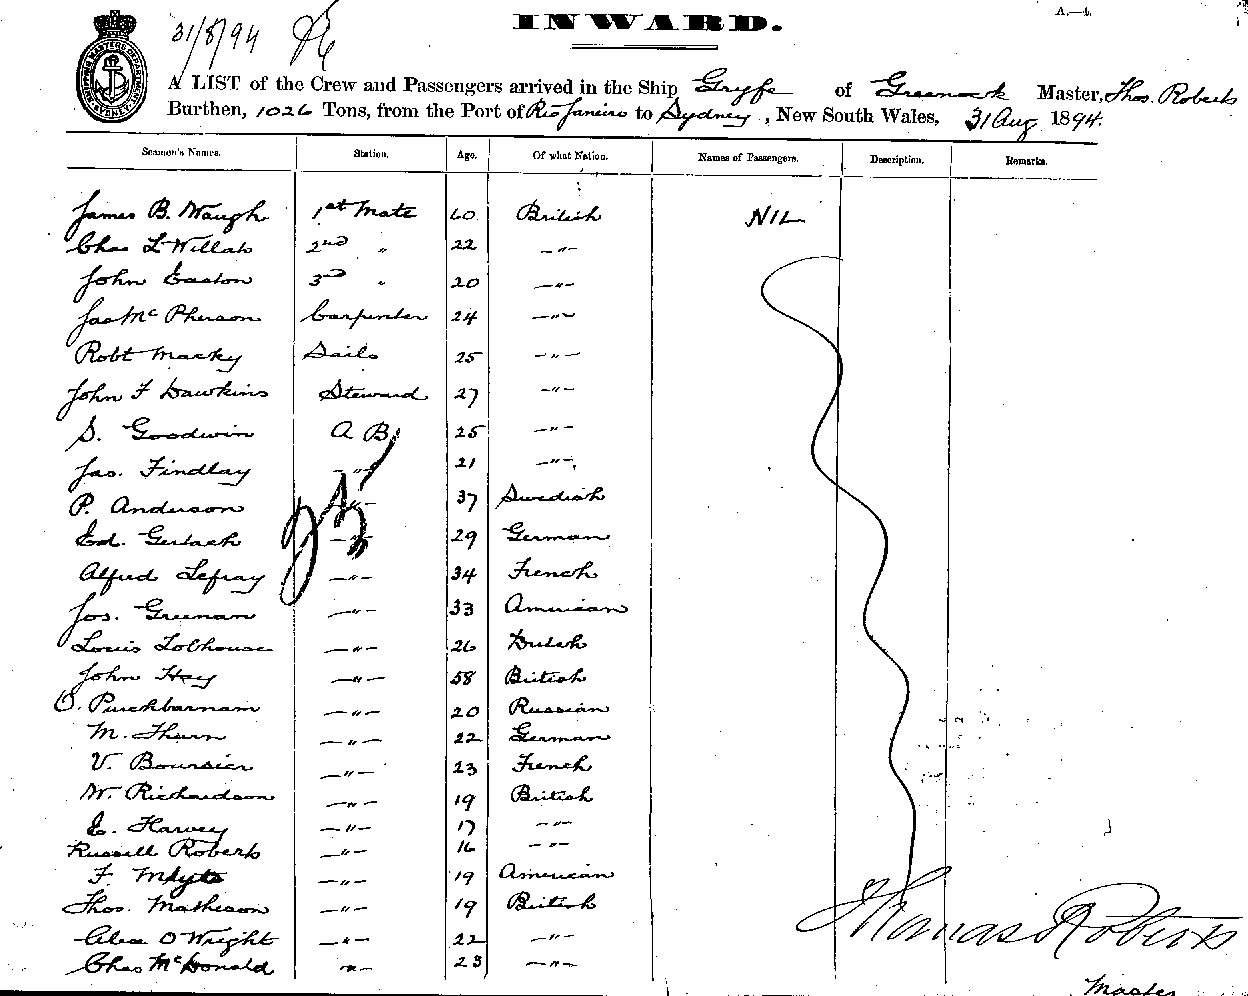 INWARD.
A.—4.
31/8/94
A LIST of the Crew and Passengers arrived in the Ship Gryfe of Greenock Master, Thos. Roberts
Burthen, 1026 Tons, from the Port of Rio Janeiro to Sydney, New South Wales, 31 Aug 1894.
Seamen's Names. Station. Age. Of what Nation. Names of Passengers. Description. Remarks.
James B. Waugh 1st Mate 60 British NIL
Chas L Willats 2nd " 22 —"—
John Easton 3rd " 20 —"—
Jas McPherson Carpenter 24 —"—
Robt Macky Sails 25 —"—
John F Hawkins Steward 27 —"—
S. Goodwin A B. 25 —"—
Jas. Findlay —"— 21 —"—
P. Anderson —"— 37 Swedish
Ed. Gerlach —"— 29 German
Alfred Lefray —"— 34 French
Jos. Greenan —"— 33 American
Louis Lobhouse —"— 26 Dutch
John Hay —"— 58 British
O. —"— 20 Russian
M. Thurn —"— 22 German
V. Boursier —"— 23 French
W. Richardson —"— 19 British
E. Harvey —"— 17 —"—
Russell Roberts —"— 16 —"—
F —"— 19 American
Thos. Matheson —"— 19 British
Alex O Wright —"— 22 —"—
Chas McDonald —"— 23 —"—
Thomas Roberts
Master